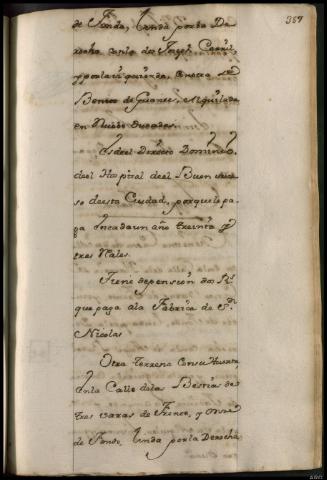 387
de Fondo, Linda por la De
recha con la de Joseph
y por la izquierda, con otra de
Benito de alquilada
en Nuebe Ducados.
Es del Derecho Dominico,
del Hospital del Buen suce
so de esta Ciudad, por que le pa-
ga en cada un año treinta y
tres Rales.
Tiene de pension dos Rs.
que paga a la Fabrica de Sn.
Nicolas
Otro terreno con su Huerta,
en la Calle de las Bestias de
tres varas de Frente, y onze
de Fondo, Linda por la Derecha